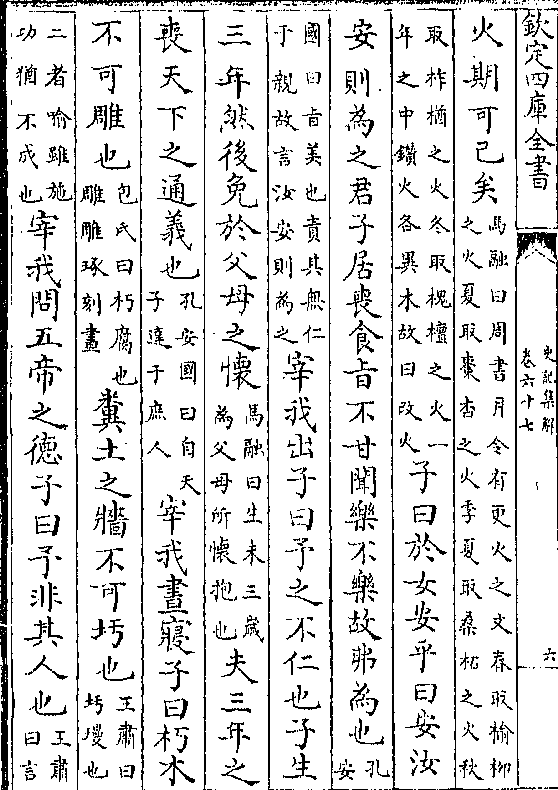 欽定四庫全書
史記集解
卷六十七
六
火期可已矣馬融曰周書月令有更火之文春取榆柳之火夏取棗杏之火季夏取桑柘之火秋
取柞楢之火冬取槐檀之火一年之中鑽火各異木故曰改火子曰於女安乎曰安汝
安則為之君子居喪食旨不甘聞樂不樂故弗為也孔安
國曰旨美也責其無仁于親故言汝安則為之宰我出子曰予之不仁也子生
三年然後免於父母之懷馬融曰生未三歲為父母所懷抱也夫三年之
喪天下之通義也孔安國曰自天子達于庶人宰我晝寢子曰朽木
不可雕也包氏曰朽腐也雕雕琢刻畫糞土之牆不可圬也王肅曰圬墁也
二者喻雖施功猶不成也宰我問五帝之德子曰予非其人也王肅曰言